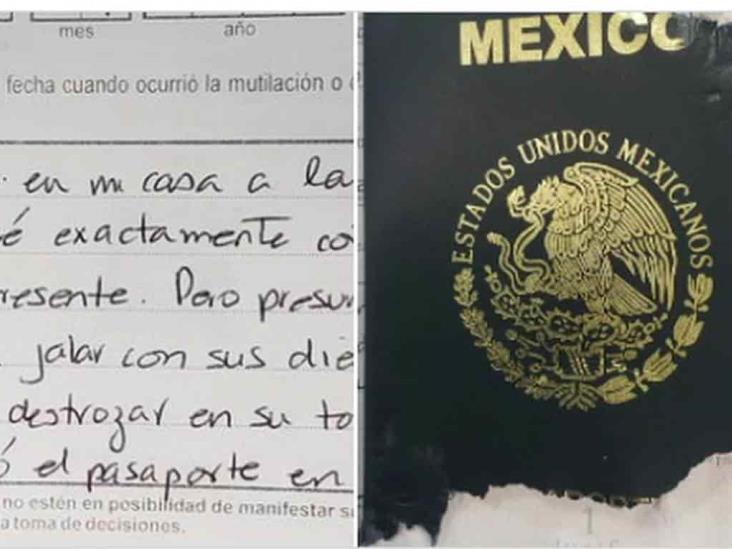 mes año
fecha cuando ocurrió la mutilación o
en mi casa a la
é exactamente có
resente. Pero presu
jalar con sus die
destrozar en su to
ó el pasaporte en
no estén en posibilidad de manifestar s
a toma de decisiones.
MEXICO
ESTADOS UNIDOS MEXICANOS
1